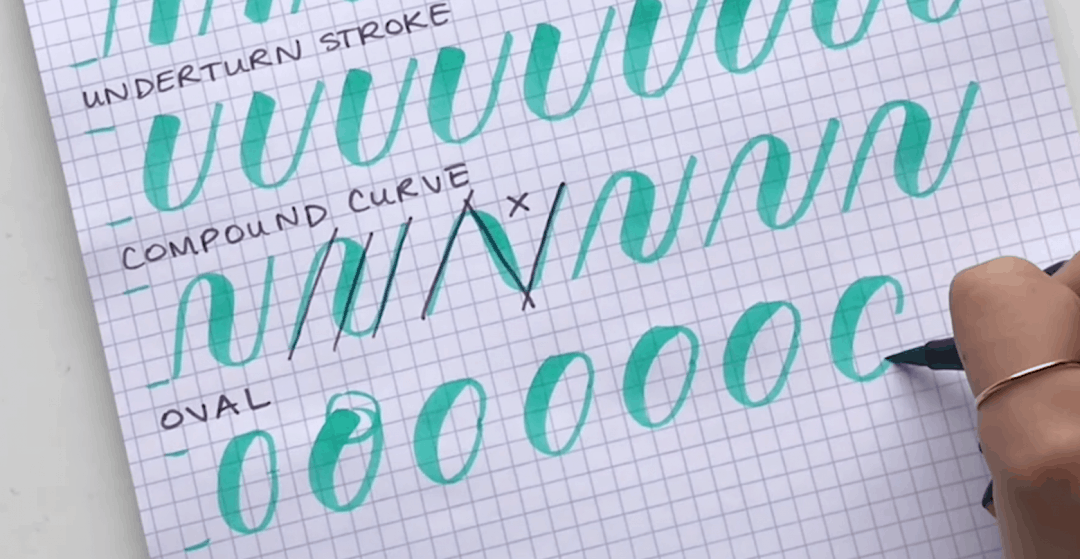 UNDERTURN STROKE
COMPOUND CURVE
x
OVAL